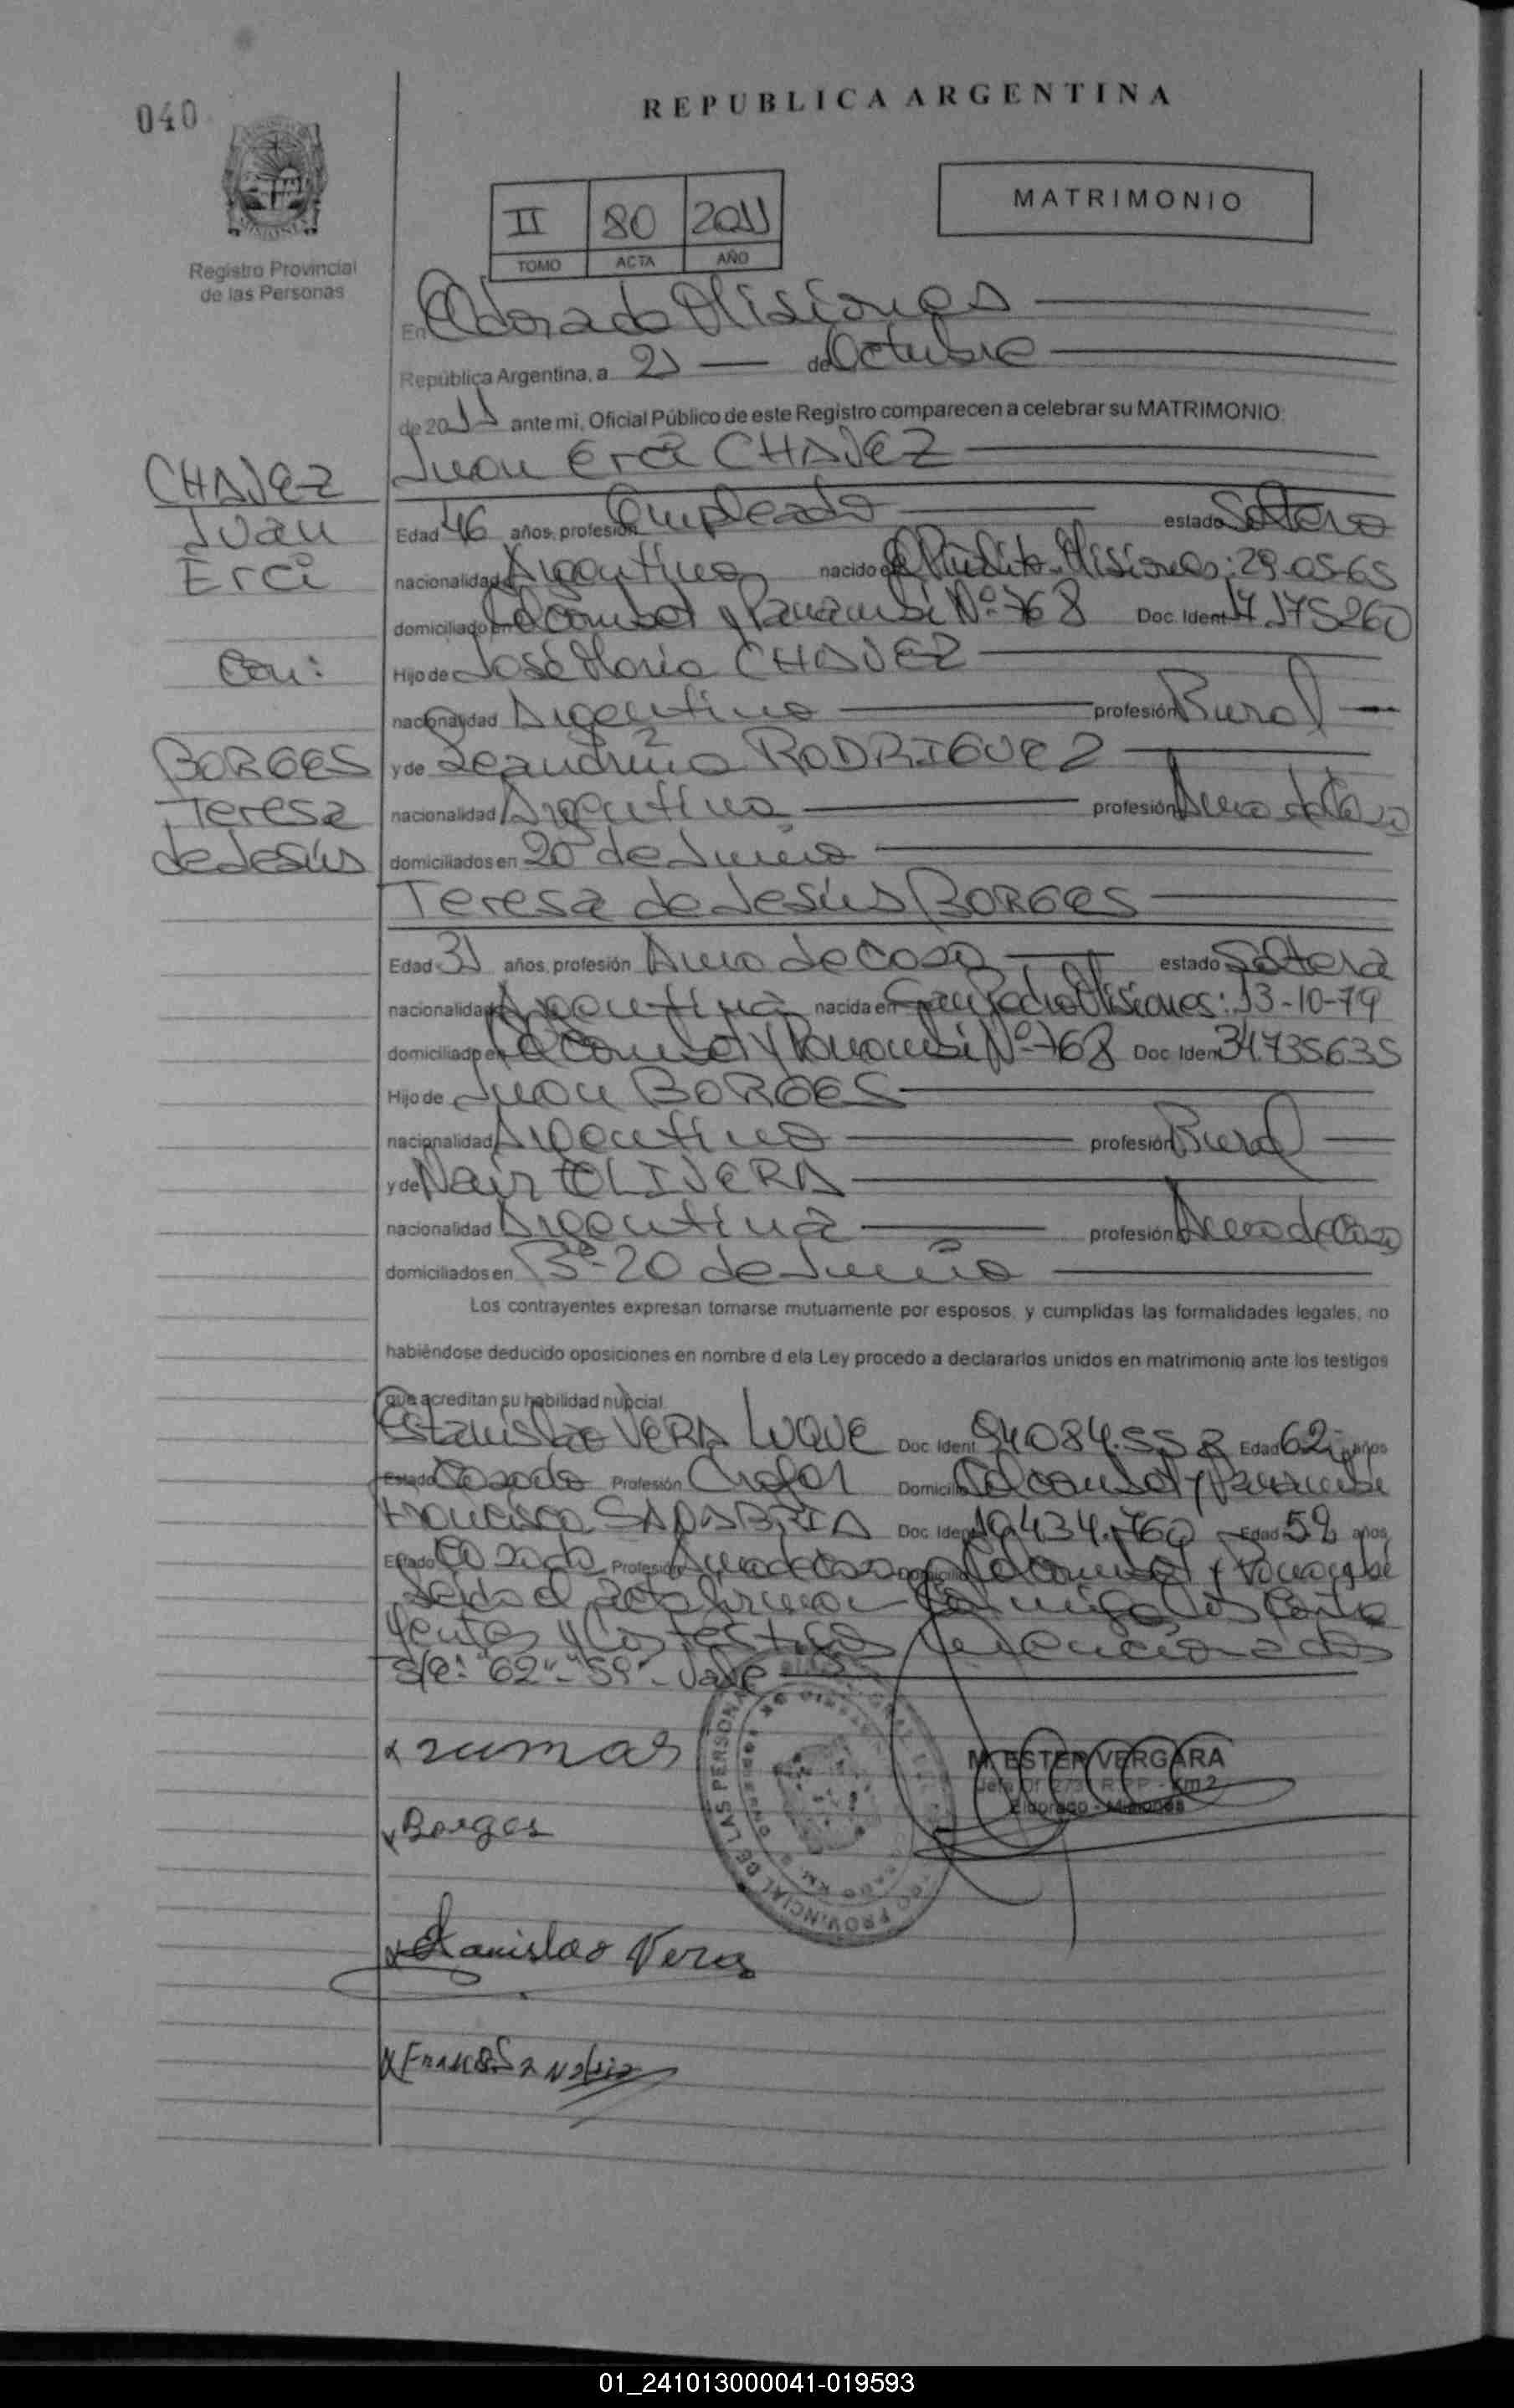 040
REPUBLICA ARGENTINA
MATRIMONIO
II 80 2011
TOMO ACTA AÑO
Registro Provincial
de las Personas
En Eldorado Misiones
República Argentina, a 21 de Octubre
de 2011 ante mi, Oficial Público de este Registro comparecen a celebrar su MATRIMONIO:
CHAVEZ
Juan
Erci
Con:
BORGES
Teresa
de Jesús
Juan Erci CHAVEZ
Edad 46 años, profesión Empleado estado Soltero
nacionalidad Argentino nacido en Misiones: 29-05-65
domiciliado en y Panambí Nº 768 Doc. Ident. 17.175260
Hijo de José María CHAVEZ
nacionalidad Argentino profesión Rural
y de Leandrina RODRIGUEZ
nacionalidad Argentina profesión Ama de Casa
domiciliados en 20 de Junio
Teresa de Jesús BORGES
Edad 31 años, profesión Ama de Casa estado Soltera
nacionalidad Argentina nacida en San Pedro Misiones: 13-10-79
domiciliado en y Panambí Nº 768 Doc Ident 34.735635
Hijo de Juan BORGES
nacionalidad Argentino profesión Rural
y de Nair OLIVERA
nacionalidad Argentina profesión Ama de Casa
domiciliados en Bº-20 de Junio
Los contrayentes expresan tomarse mutuamente por esposos, y cumplidas las formalidades legales, no
habiéndose deducido oposiciones en nombre d ela Ley procedo a declararlos unidos en matrimonio ante los testigos
que acreditan su habilidad nupcial.
Estanislao VERA LUQUE Doc Ident Edad 62 años
Estado Casado Profesión Chofer Domicilio y Panambí
Francisca SANABRIA Doc Ident 10.434.760 Edad 59 años
Estado Casada Profesión Ama de Casa Domicilio y Panambí
Leída el acta firman Conmigo los Contra
yentes y los testigos mencionados
S/R: "62"-"59"- Vale
Borges
Estanislao Vera
M. ESTER VERGARA
Jefa Of. 273 R.P.P - Km 2
Eldorado - Misiones
01_241013000041-019593